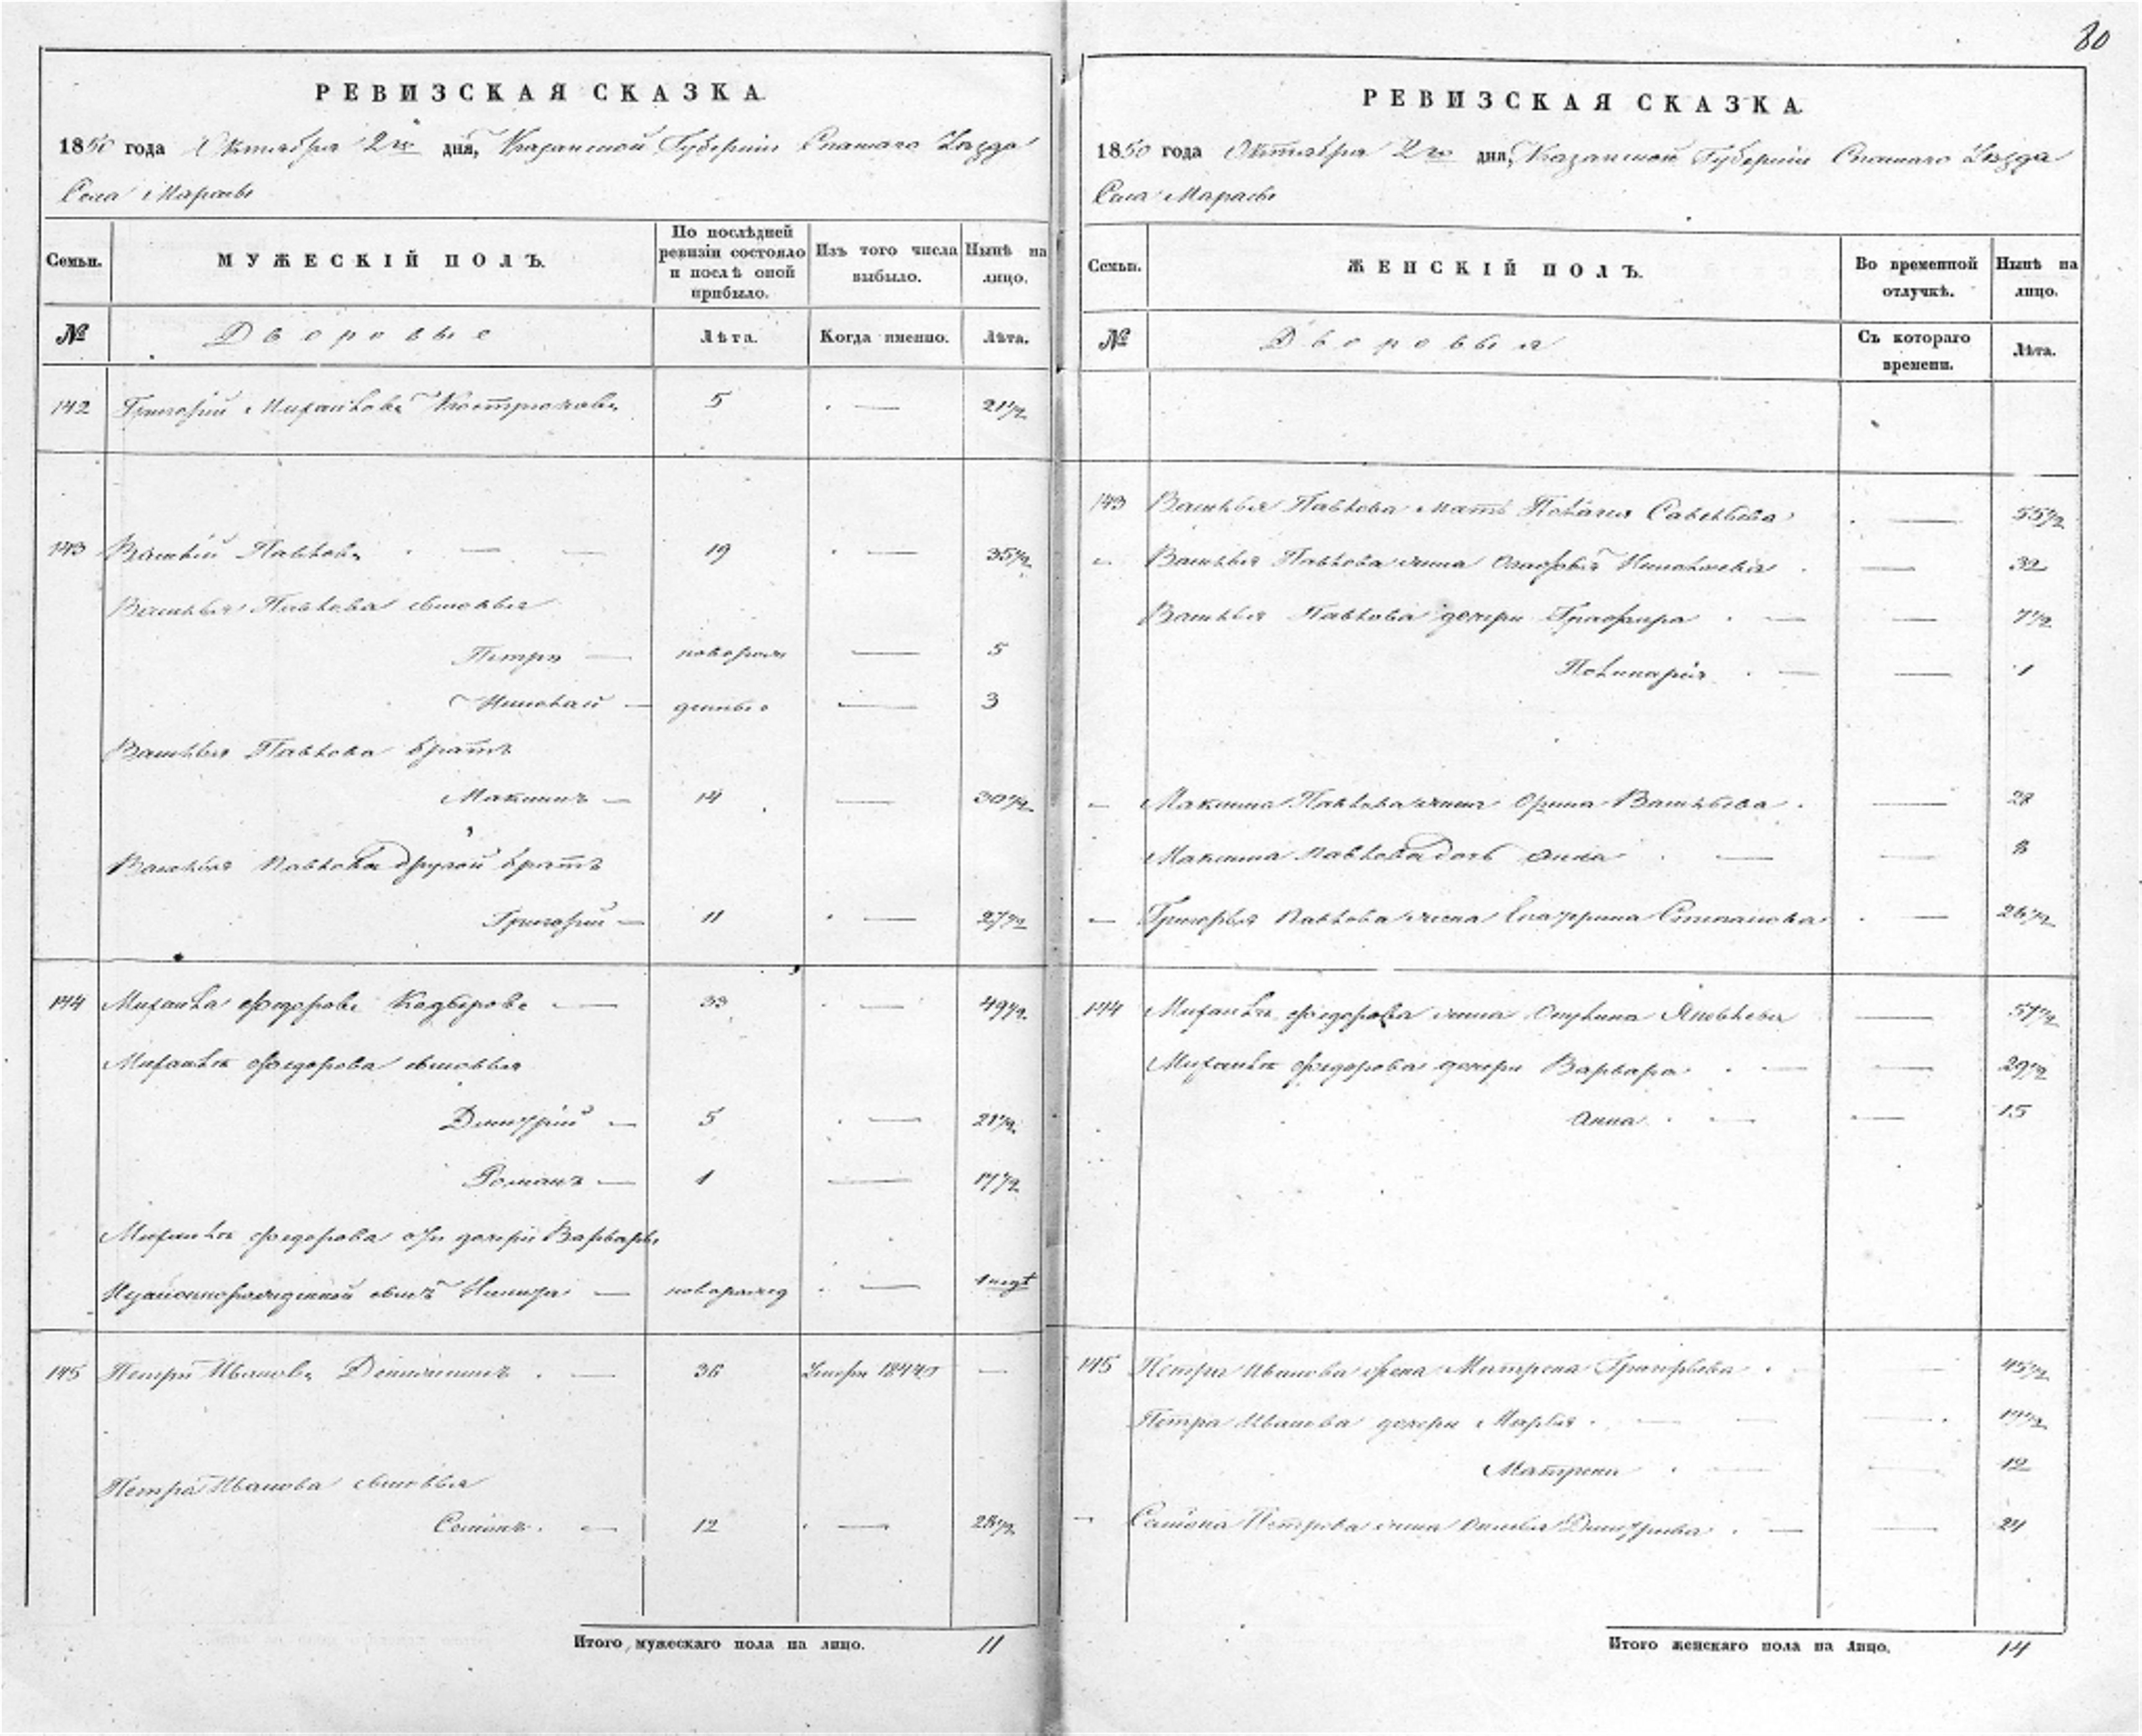 80
РЕВИЗСКАЯ СКАЗКА.
1850 года Октября 2го дня, Казанской Губерніи Спаскаго Уѣзда
Села
Семьи. МУЖЕСКІЙ ПОЛЪ. По послѣдней ревизіи состояло и послѣ оной прибыло. Изъ того числа выбыло. Нынѣ на лицо.
№ Дворовые Лѣта. Когда именно. Лѣта.
142 Григорій Михайловъ 5 — 21½
143 Василій Павловъ — — 19 — 35½
Василья Павлова сыновья
Петръ — новорож 5
Николай — денные — 3
Василья Павлова братъ
Максимъ — 14 — 30½
Василья Павлова другой братъ
Григорій — 11 — 27½
144 Михаила Федоровъ — 33 — 49½
Михайлы Федорова сыновья
Дмитрій — 5 — 21½
Романъ — 1 — 17½
Михайлы Федорова отъ дочери Варвары
Незаконнорожденной сынъ Никита — новорожд — 1 недѣ
145 Петръ Ивановъ — 36 Умеръ 1844 —
Петра Иванова сыновья
Семенъ. — 12 — 28½
Итого мужескаго пола на лицо. 11
РЕВИЗСКАЯ СКАЗКА.
1850 года Октября 2го дня, Казанской Губерніи Спаскаго Уѣзда
Села
Семьи. ЖЕНСКІЙ ПОЛЪ. Во временной отлучкѣ. Нынѣ на лицо.
№ Дворовыя Съ котораго времени. Лѣта.
143 Василья Павлова мать Пелагея Савельева — 55½
Василья Павлова жена — 32
Василья Павлова дочери Глафира — — 7½
— — 1
Максима Павлова жена Орина Васильева — 28
Максима Павлова дочь Анна — — 8
Григорья Павлова жена Екатерина Степанова — 26½
144 Михайлы Федорова жена Акулина Яковлева — 51½
Михайлы Федорова дочери Варвара — — 29½
Анна — — 15
145 Петра Иванова жена Матрена Григорьева — 45½
Петра Иванова дочери Марья — — — 17½
Матрена — — 12
Семена Петрова жена Дмитріева — — 24
Итого женскаго пола на лицо. 14